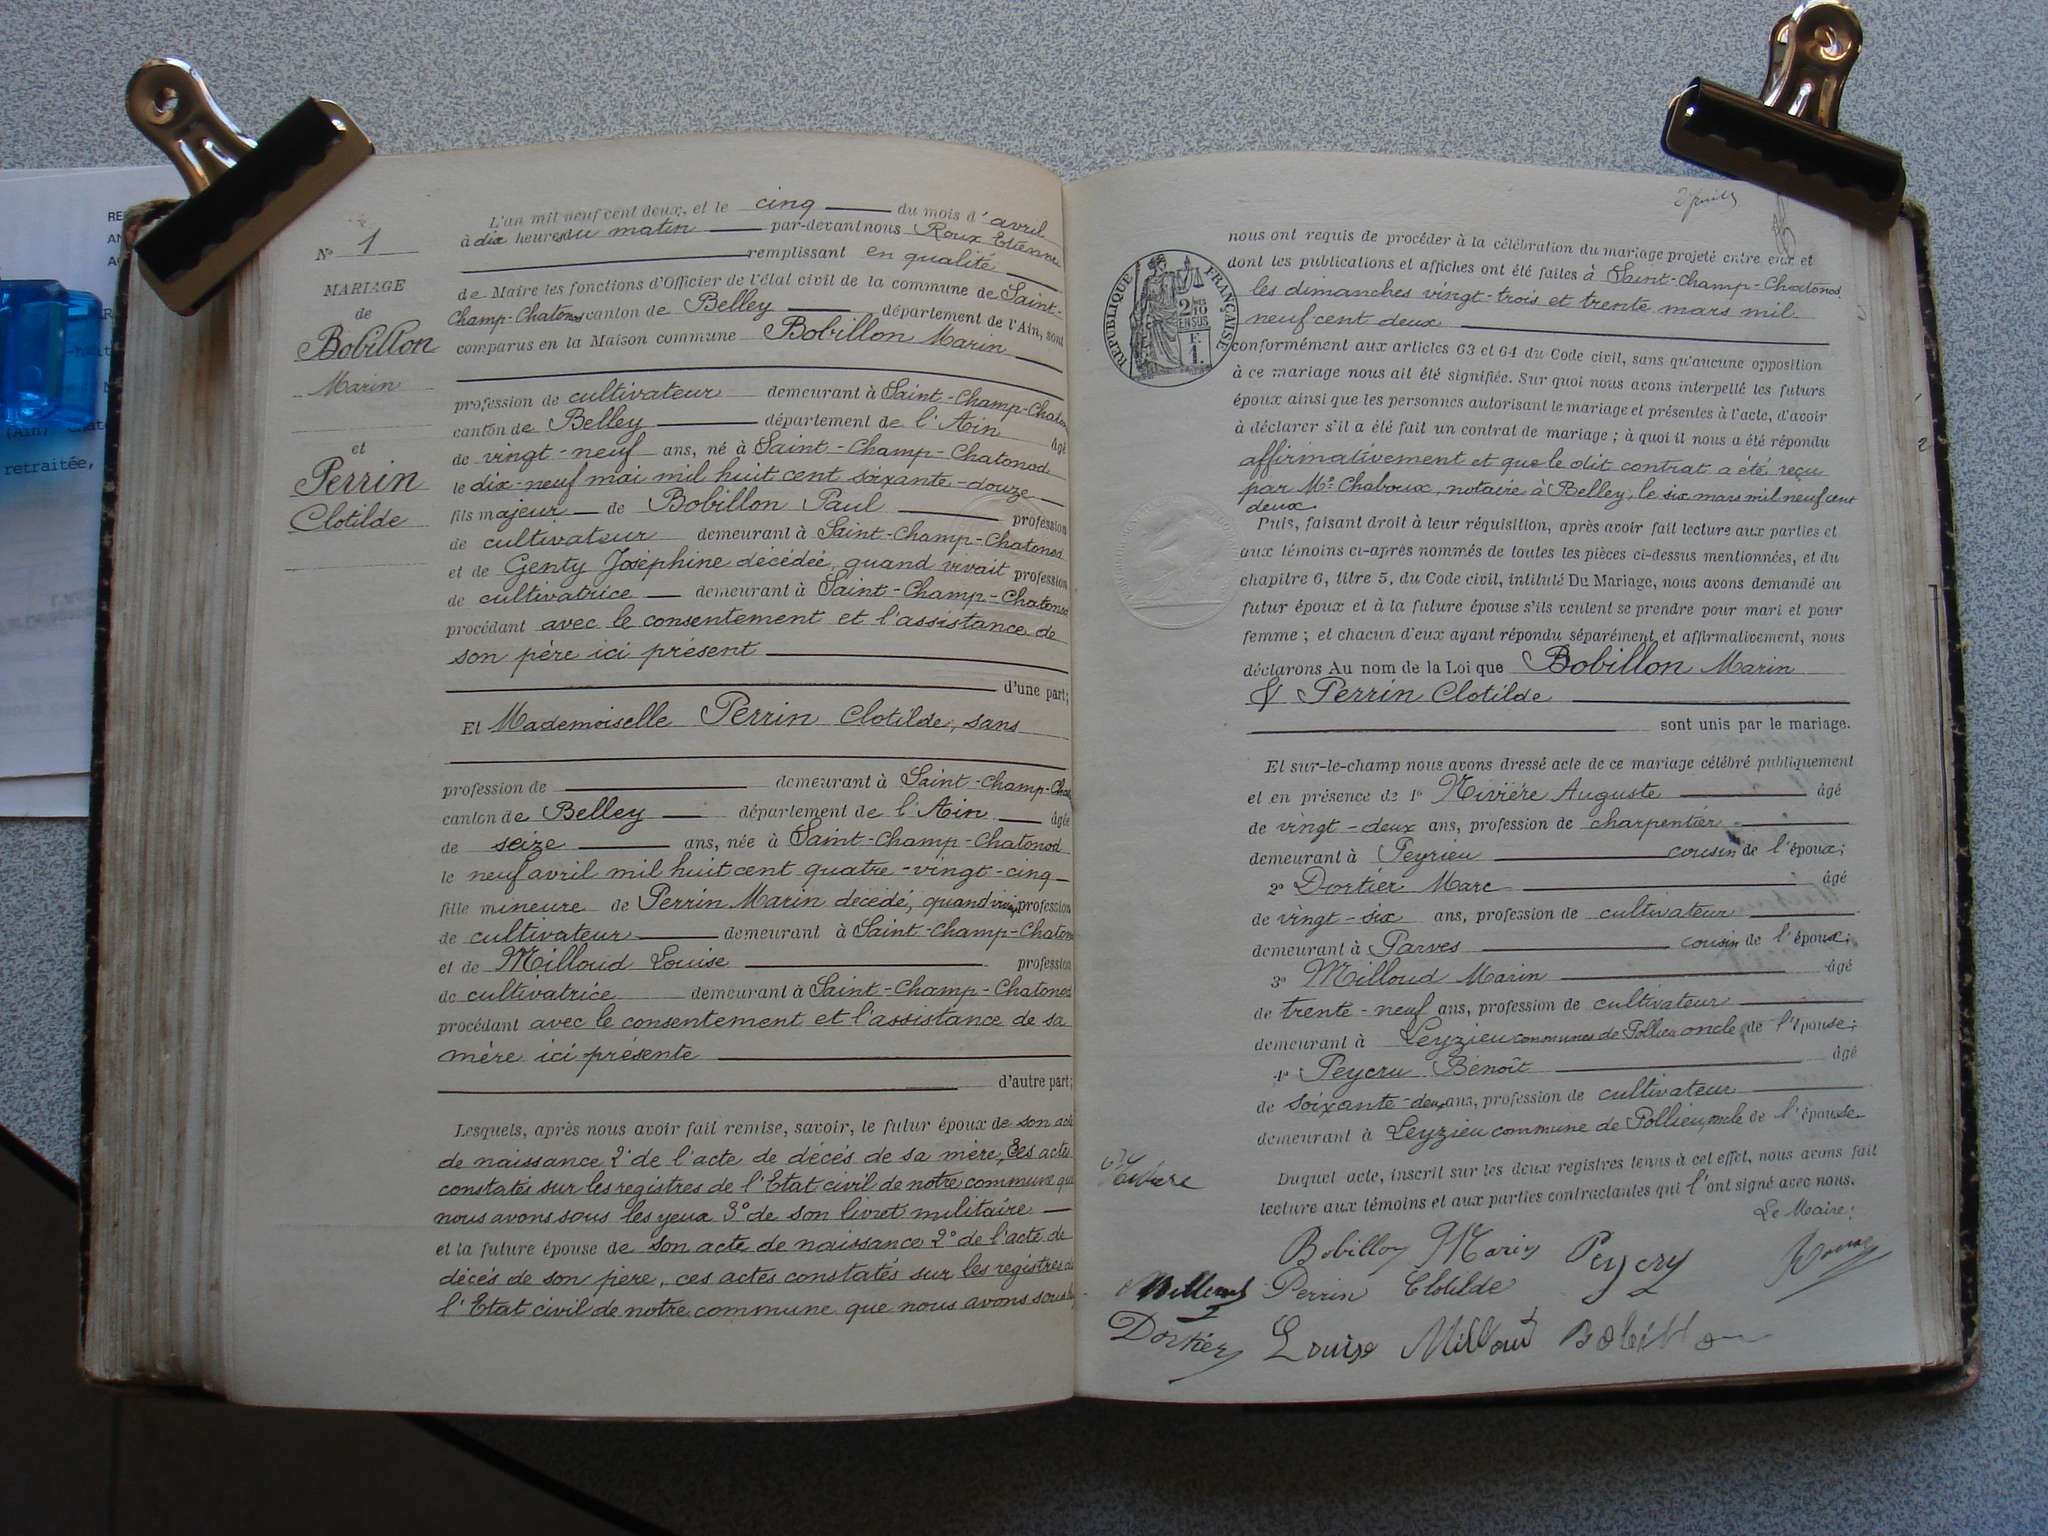 N° 1
MARIAGE
de
Bobillon
Marin
et
Perrin
Clotilde
L'an mil neuf cent deux, et le cinq du mois d'avril
à dix heures du matin par-devant nous Roux Etienne
remplissant en qualité
de Maire les fonctions d'Officier de l'état civil de la commune de Saint-
Champ-Chatonod canton de Belley département de l'Ain, sont
comparus en la Maison commune Bobillon Marin
profession de cultivateur demeurant à Saint-Champ-Chaton
canton de Belley département de l'Ain âgé
de vingt-neuf ans, né à Saint-Champ-Chatonod
le dix-neuf mai mil huit cent soixante-douze
fils majeur de Bobillon Paul profession
de cultivateur demeurant à Saint-Champ-Chatonod
et de Genty Joséphine décédée, quand vivait profession
de cultivatrice demeurant à Saint-Champ-Chatonod
procédant avec le consentement et l'assistance de
son père ici présent
d'une part;
Et Mademoiselle Perrin Clotilde, sans
profession de demeurant à Saint-Champ-Cha
canton de Belley département de l'Ain âgée
de seize ans, née à Saint-Champ-Chatonod
le neuf avril mil huit cent quatre-vingt-cinq
fille mineure de Perrin Marin décédé, quand vivait profession
de cultivateur demeurant à Saint-Champ-Chaton
et de Milloud Louise profession
de cultivatrice demeurant à Saint-Champ-Chatonod
procédant avec le consentement et l'assistance de sa
mère ici présente
d'autre part;
Lesquels, après nous avoir fait remise, savoir, le futur époux de son acte
de naissance 2° de l'acte de décès de sa mère, Ces actes
constatés sur les registres de l'Etat civil de notre commune que
nous avons sous les yeux 3° de son livret militaire
et la future épouse de son acte de naissance 2° de l'acte de
décès de son père, ces actes constatés sur les registres de
l'Etat civil de notre commune que nous avons sous
nous ont requis de procéder à la célébration du mariage projeté entre eux et
dont les publications et affiches ont été faites à Saint-Champ-Chatonod
les dimanches vingt-trois et trente mars mil
neuf cent deux
conformément aux articles 63 et 64 du Code civil, sans qu'aucune opposition
à ce mariage nous ait été signifiée. Sur quoi nous avons interpellé les futurs
époux ainsi que les personnes autorisant le mariage et présentes à l'acte, d'avoir
à déclarer s'il a été fait un contrat de mariage; à quoi il nous a été répondu
affirmativement et que le dit contrat a été reçu
par Me Chaboux, notaire à Belley, le six mars mil neuf cent
deux
Puis, faisant droit à leur réquisition, après avoir fait lecture aux parties et
aux témoins ci-après nommés de toutes les pièces ci-dessus mentionnées, et du
chapitre 6, titre 5, du Code civil, intitulé Du Mariage, nous avons demandé au
futur époux et à la future épouse s'ils veulent se prendre pour mari et pour
femme; et chacun d'eux ayant répondu séparément et affirmativement, nous
déclarons Au nom de la Loi que Bobillon Marin
& Perrin Clotilde
sont unis par le mariage.
Et sur-le-champ nous avons dressé acte de ce mariage célébré publiquement
et en présence de 1° Rivière Auguste âgé
de vingt-deux ans, profession de charpentier
demeurant à Peyrieu cousin de l'époux;
2° Dortier Marc âgé
de vingt-six ans, profession de cultivateur
demeurant à Parves cousin de l'époux;
3° Milloud Marin âgé
de trente-neuf ans, profession de cultivateur
demeurant à Leyzieu commune de Pollieu oncle de l'épouse;
4° Peycru Benoît âgé
de soixante-deux ans, profession de cultivateur
demeurant à Leyzieu commune de Pollieu, oncle de l'épouse
Duquel acte, inscrit sur les deux registres tenus à cet effet, nous avons fait
lecture aux témoins et aux parties contractantes qui l'ont signé avec nous.
Le Maire:
Bobillon Marin Peycru Roux
Milloud Perrin Clotilde
Dortier Louise Milloud Bobillon
RÉPUBLIQUE FRANÇAISE
2/10 EN SUS
F. 1.
retraitée,